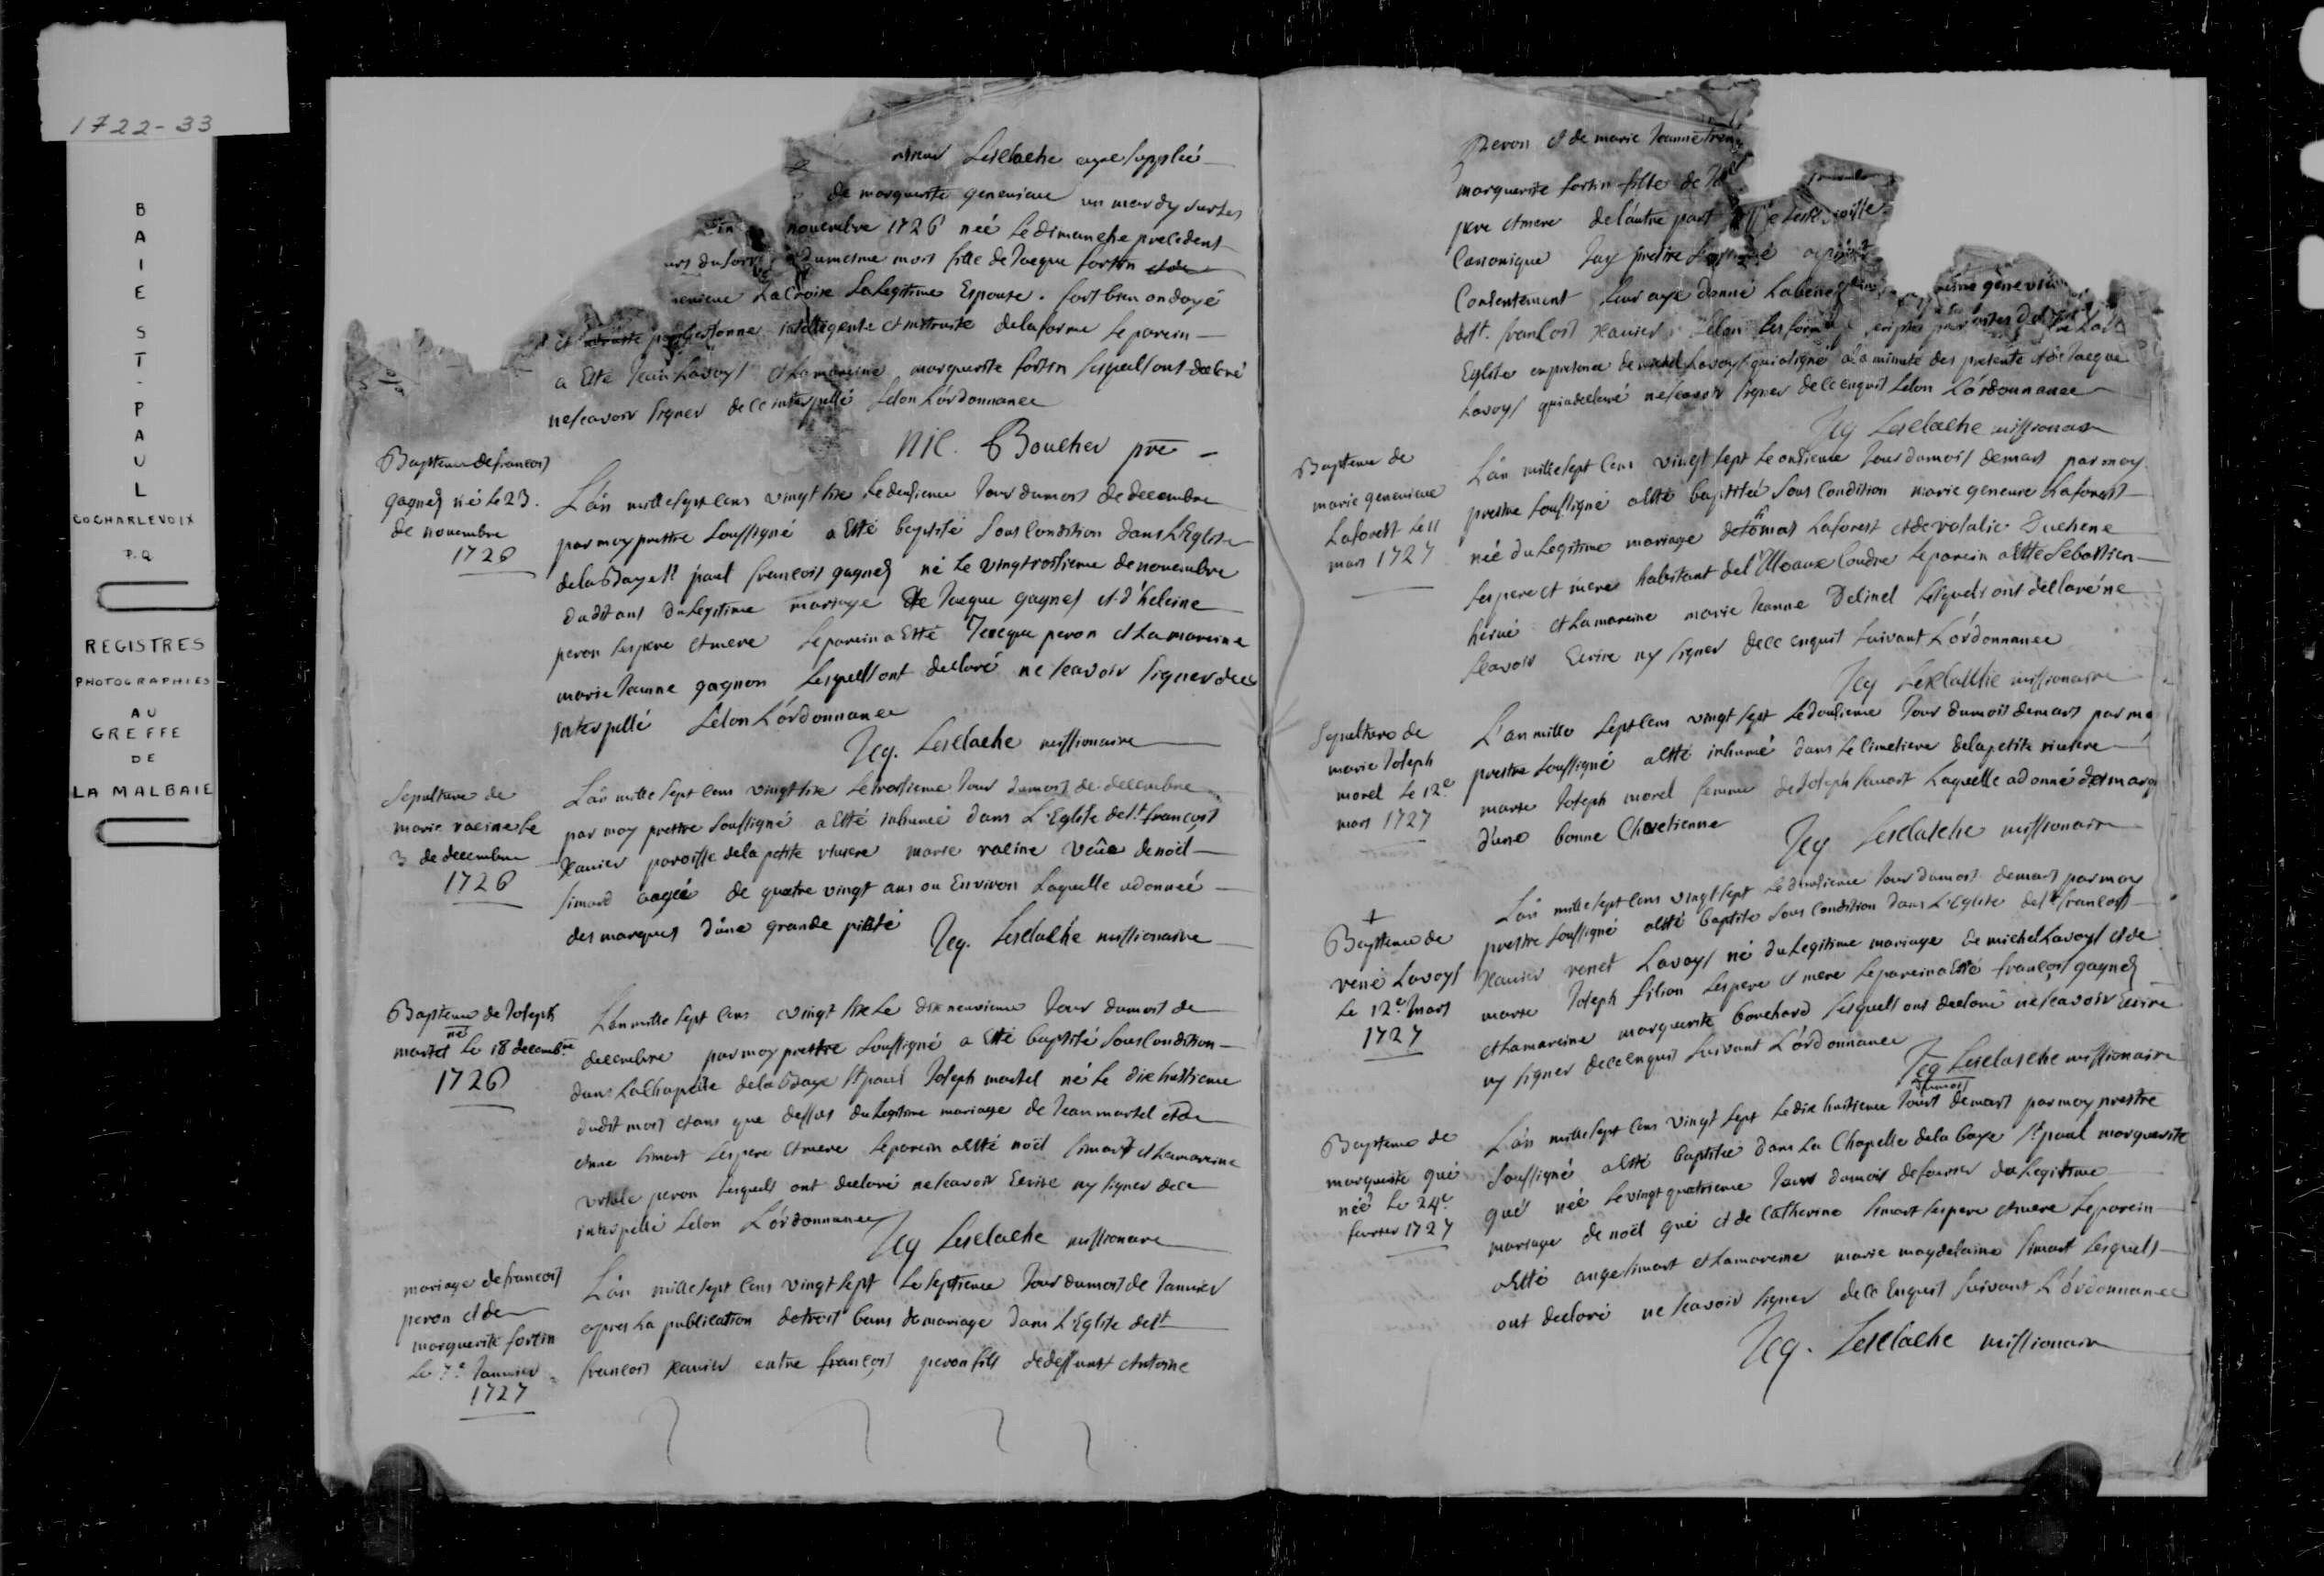 1722-33
BAIE ST-PAUL
CO CHARLEVOIX
P.Q
REGISTRES
PHOTOGRAPHIES
AU
GREFFE
DE
LA MALBAIE
Lesclache aye supplée
de marguerite genevieve un mardy
novembre 1726 née le dimanche precedent
du mesme mois fille de Jacque fortin et de
La Croix sa legitime Espouse. fort bien ondoyé
et personne intelligente et instruite de la forme le parein
a Esté Jean Lavoys et La mareine marguerite fortin lesquels ont declaré
ne scavoir signer de ce interpellé selon L'ordonnance
Nic. Boucher pre
Bapteme de francois
gagnez né le 23.
de novembre
1726
L'an mille sept cens vingt six le deusieme Jour du mois de decembre
par moy prestre soussigné a Esté baptisé sous condition dans L'Eglise
de la Baye St paul francois gagnez né le vingtroisieme de novembre
dudit ans du legitime mariage de Jacque gagnez et d'heleine
peron ses pere et mere le parein a Esté Jacque peron et La mareine
marie Jeanne gagnon lesquels ont declaré ne scavoir signer de ce
interpellé selon L'ordonnance
Jcq. Lesclache missionaire
Sepulture de
marie racine le
3 de decembre
1726
L'an mille sept cens vingt six le troisieme Jour du mois de decembre
par moy prestre soussigné a Esté inhumée dans L'Eglise de St francois
Xavier paroisse de la petite riviere marie racine veüe de noël
simard aagée de quatre vingt ans ou Environ Laquelle a donnée
des marques d'une grande pieté Jcq. Lesclache missionaire
Bapteme de Joseph
né
martel le 18 decembre
1726
L'an mille sept cens vingt six le dix neuvieme Jour du mois de
decembre par moy prestre soussigné a Esté baptisé sous condition
dans La Chapelle de la Baye St paul Joseph martel né le dix huitieme
dudit mois et ans que dessus du legitime mariage de Jean martel et de
anne simart ses pere et mere le parein a Esté noël simart et La mareine
peron lesquels ont declaré ne scavoir Ecrire ny signer de ce
interpellé selon L'ordonnance
Jcq Lesclache missionaire
mariage de francois
peron et de
marguerite fortin
Le 7e Janvier
1727
L'an mille sept cens vingt sept le septieme Jour du mois de Janvier
apres La publication de trois bans de mariage dans L'Eglise de St
francois Xavier entre françois peron fils de deffunt Antoine
peron et de marie Jeanne
marguerite fortin fille de
pere et mere de l'autre part
Canonique Jay prestre soussigné
Consentement Leur aye donné La
de St. francois Xavier selon les
Eglise en presence de michel Lavoys qui a signé a la minute des presente et de Jacque
Lavoys qui a declaré ne scavoir signer de ce enquit selon L'ordonnance
Jcq Lesclache missionaire
Bapteme de
marie genevieve
Laforest le 11
mars 1727
L'an mille sept cens vingt sept le onsieme Jour du mois de mars par moy
prestre soussigné a Esté baptisée sous condition marie Laforest
née du legitime mariage de tomas Laforest et de Duchene
ses pere et mere habitant de l'Isle aux Coudre le parein a Esté Sebastien
hervé et La mareine marie Jeanne Delinel lesquels ont declaré ne
scavoir Ecrire ny signer de ce enquit suivant L'ordonnance
Jcq Lesclache missionaire
Sepulture de
marie Joseph
morel le 12e
mars 1727
L'an mille sept cens vingt sept le dousieme Jour du mois de mars par mo
prestre soussigné a Esté inhumé dans le cimetiere de la petite riviere
marie Joseph morel femme de Joseph simart Laquelle a donné des marq
d'une bonne Chretienne
Jcq Lesclache missionaire
+
Bapteme de
rené Lavoys
Le 12e mars
1727
L'an mille sept cens vingt sept le dousieme Jour du mois de mars par moy
prestre soussigné a Esté baptisé sous condition dans L'Eglise de St francois
Xavier renet Lavoys né du legitime mariage de michel Lavoys et de
marie Joseph filion ses pere et mere le parein a Esté françois gagnez
et La mareine marguerite bouchard lesquels ont declaré ne scavoir Ecrire
ny signer de ce enquit suivant L'ordonnance
Jcq Lesclache missionaire
Bapteme de
marguerite gué
née Le 24e
fevrier 1727
du mois
L'an mille sept cens vingt sept le dix huitieme Jour de mars par moy prestre
soussigné a Esté baptisée dans La Chapelle de la baye St paul marguerite
gué née le vingt quatrieme Jour du mois de fevrier du legitime
mariage de noël gué et de Catherine simart ses pere et mere le parein
a Esté ange simart et La mareine marie magdelaine simart lesquels
ont declaré ne scavoir signer de ce Enquit suivant L'ordonnance
Jcq. Lesclache missionaire